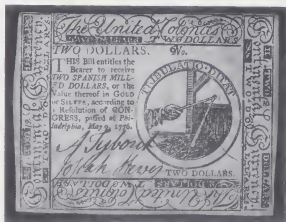 The United Colonies
TWO DOLLARS.
TWO DOLLARS. No.
THIS Bill entitles the
Bearer to receive
TWO SPANISH MILL-
ED DOLLARS, or the
Value thereof in GOLD
or SILVER, according to
a Resolution of CON-
GRESS, passed at Phi-
ladelphia, May 9, 1776.
TRIBULATIO DITAT
Joseph Hewes
TWO DOLLARS.
Continental Currency
Continental Currency
TWO DOLLARS.
The United Colonies